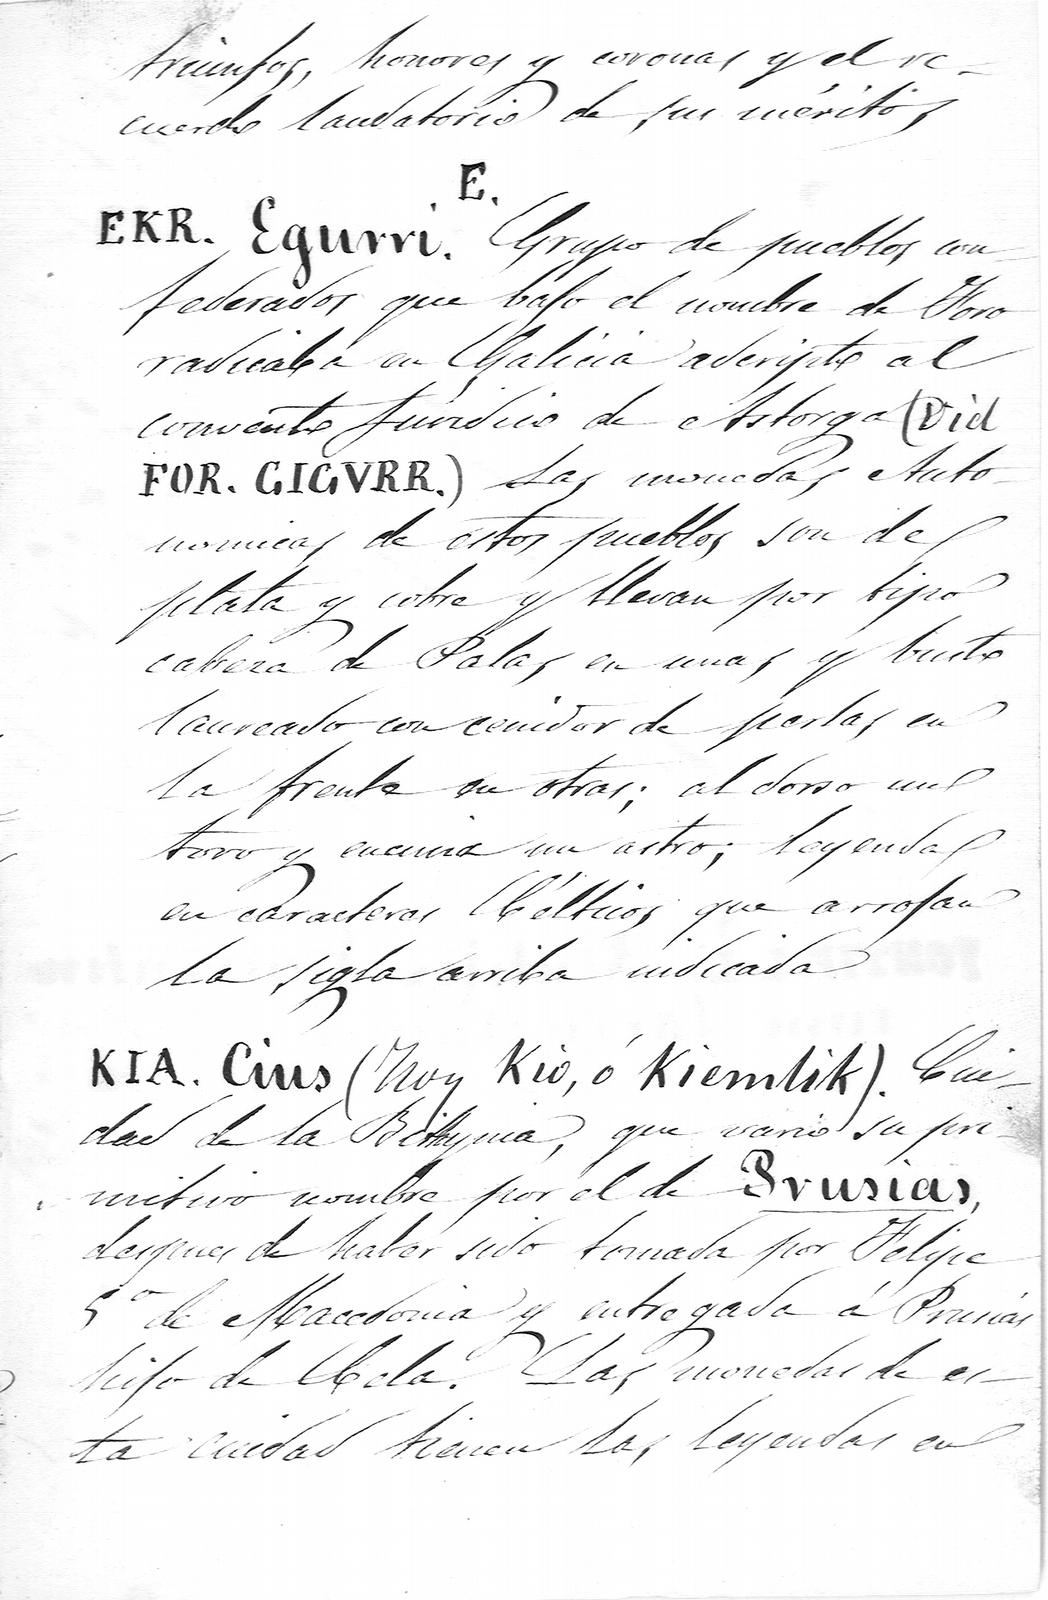 triunfos, honores y coronas y el re-
cuerdo laudatorio de sus méritos
E.
EKR. Egurri. Grupo de pueblos con-
federados que bajo el nombre de Foro
radicaba en Galicia adscripto al
convento jurídico de Astorga (Vid
FOR. GIGVRR.) Las monedas Auto-
nomicas de estos pueblos son de
plata y cobre y llevan por tipo
cabeza de Palas en unas y busto
laureado con ceñidor de perlas en
la frente en otras; al dorso un
toro y encima un astro; leyendas
en caracteres Célticos que arrojan
la sigla arriba indicada
KIA. Cius (hoy Kio, ó Kiemlik). Ciu-
dad de la Bithynia, que varió su pri-
mitivo nombre por el de Prusias,
despues de haber sido tomada por Felipe
5º de Macedonia y entregada á Prusias
hijo de Cela. Las monedas de es-
ta ciudad tienen las leyendas en